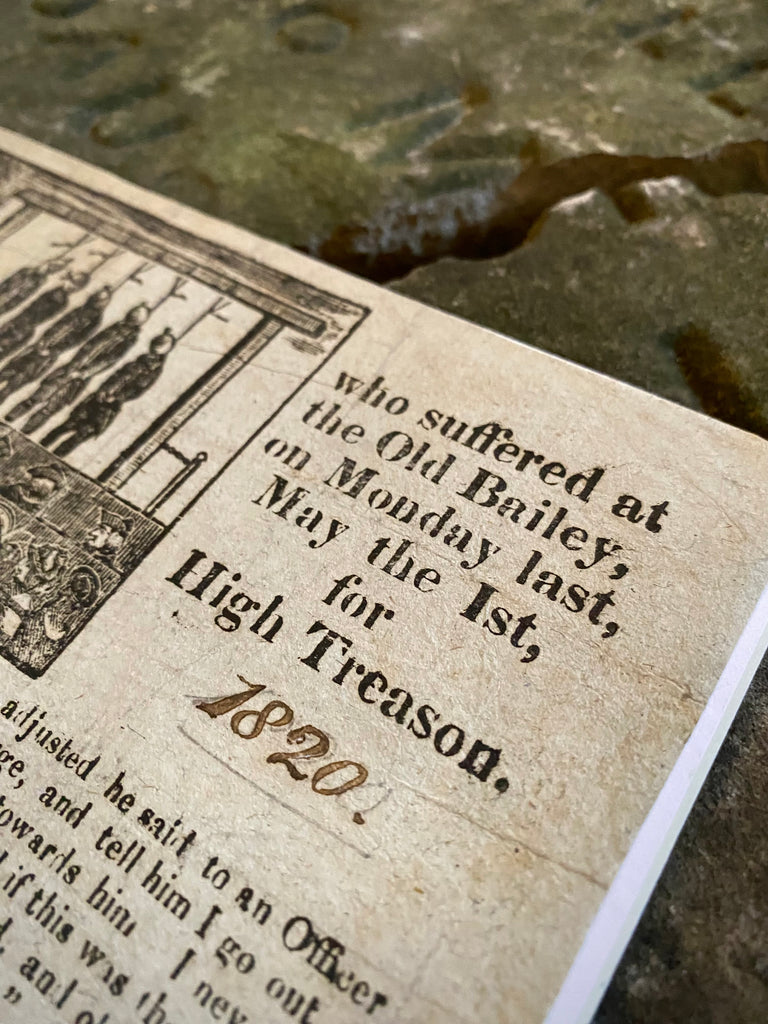 who suffered at
the Old Bailey,
on Monday last,
May the 1st,
for
High Treason.
1820.
adjusted he said to an Officer
and tell him I go out
towards him I
if this was the
and
"